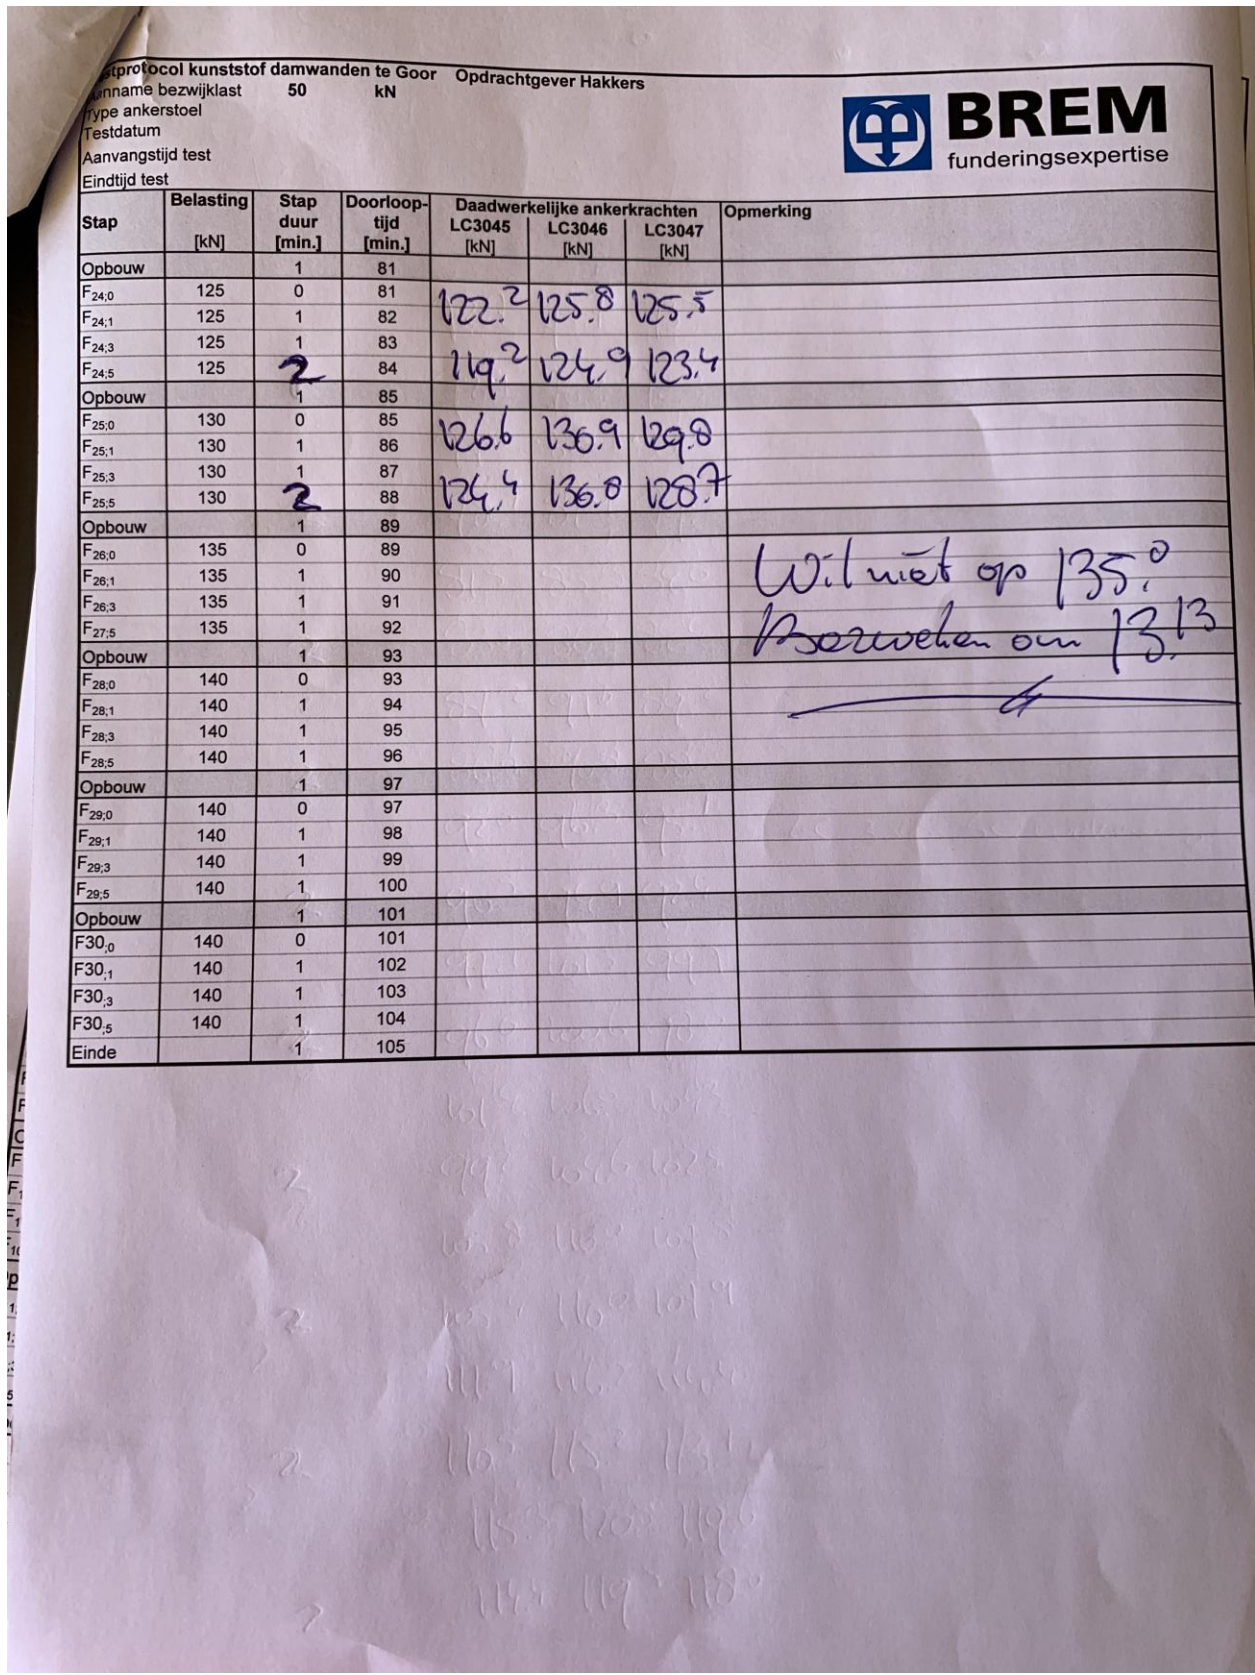 stprotocol kunststof damwanden te Goor Opdrachtgever Hakkers
nname bezwijklast 50 kN
Type ankerstoel
Testdatum
Aanvangstijd test
Eindtijd test
BREM
funderingsexpertise
Stap Belasting [kN] Stap duur [min.] Doorloop-tijd [min.] Daadwerkelijke ankerkrachten Opmerking
LC3045 [kN] LC3046 [kN] LC3047 [kN]
Opbouw 1 81
F24;0 125 0 81
122.2 125.8 125.5
F24;1 125 1 82
F24;3 125 1 83
F24;5 125 2 84 119.2 124.9 123.4
Opbouw 1 85
F25;0 130 0 85
126.6 136.9 129.8
F25;1 130 1 86
F25;3 130 1 87
F25;5 130 2 88 124.4 136.8 128.7
Opbouw 1 89
F26;0 135 0 89
Wil niet op 135.0
F26;1 135 1 90
F26;3 135 1 91
F27;5 135 1 92
Bezweken om 13.13
Opbouw 1 93
F28;0 140 0 93
F28;1 140 1 94
F28;3 140 1 95
F28;5 140 1 96
Opbouw 1 97
F29;0 140 0 97
F29;1 140 1 98
F29;3 140 1 99
F29;5 140 1 100
Opbouw 1 101
F30,0 140 0 101
F30,1 140 1 102
F30,3 140 1 103
F30,5 140 1 104
Einde 1 105